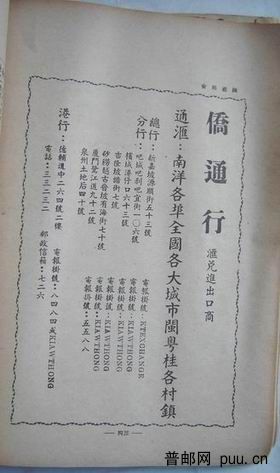 僑通行
滙兌進出口商
通滙：南洋各埠全國各大城市閩粵桂各村鎮
總行：新嘉坡源順街五十三號
電報掛號：KTEXCHANGE
分行：吧城吧剎吧宜街一〇六號
電報掛號：KIAWTHONG
檳城港仔口六十三號
電報掛號：KIAWTHONG
吉隆坡諧街七號
電報掛號：KIAWTHONG
砂朥越古晉坡有海街七十號
電報掛號：KIAWTHONG
廈門鷺江道九十二號
電報掛號：五五八八
泉州土地后四十號
港行：德輔道中二六四號二樓
電報掛號：八四八四或KIAWTHONG
電話：三三二三二
郵政信箱：七二六
—四三—
普邮网 puu.cn